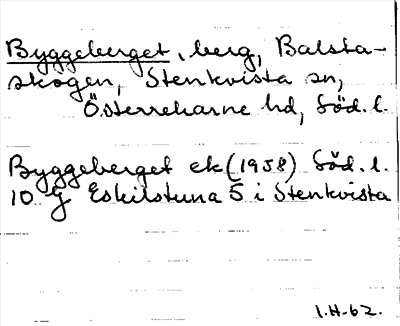 Byggeberget, berg, Balsta-
skogen, Stenkvista sn,
Österrekarne hd, Söd. l.
Byggeberget ek (1958) Söd. l.
10 G Eskilstuna 5 i Stenkvista
I.H-62.